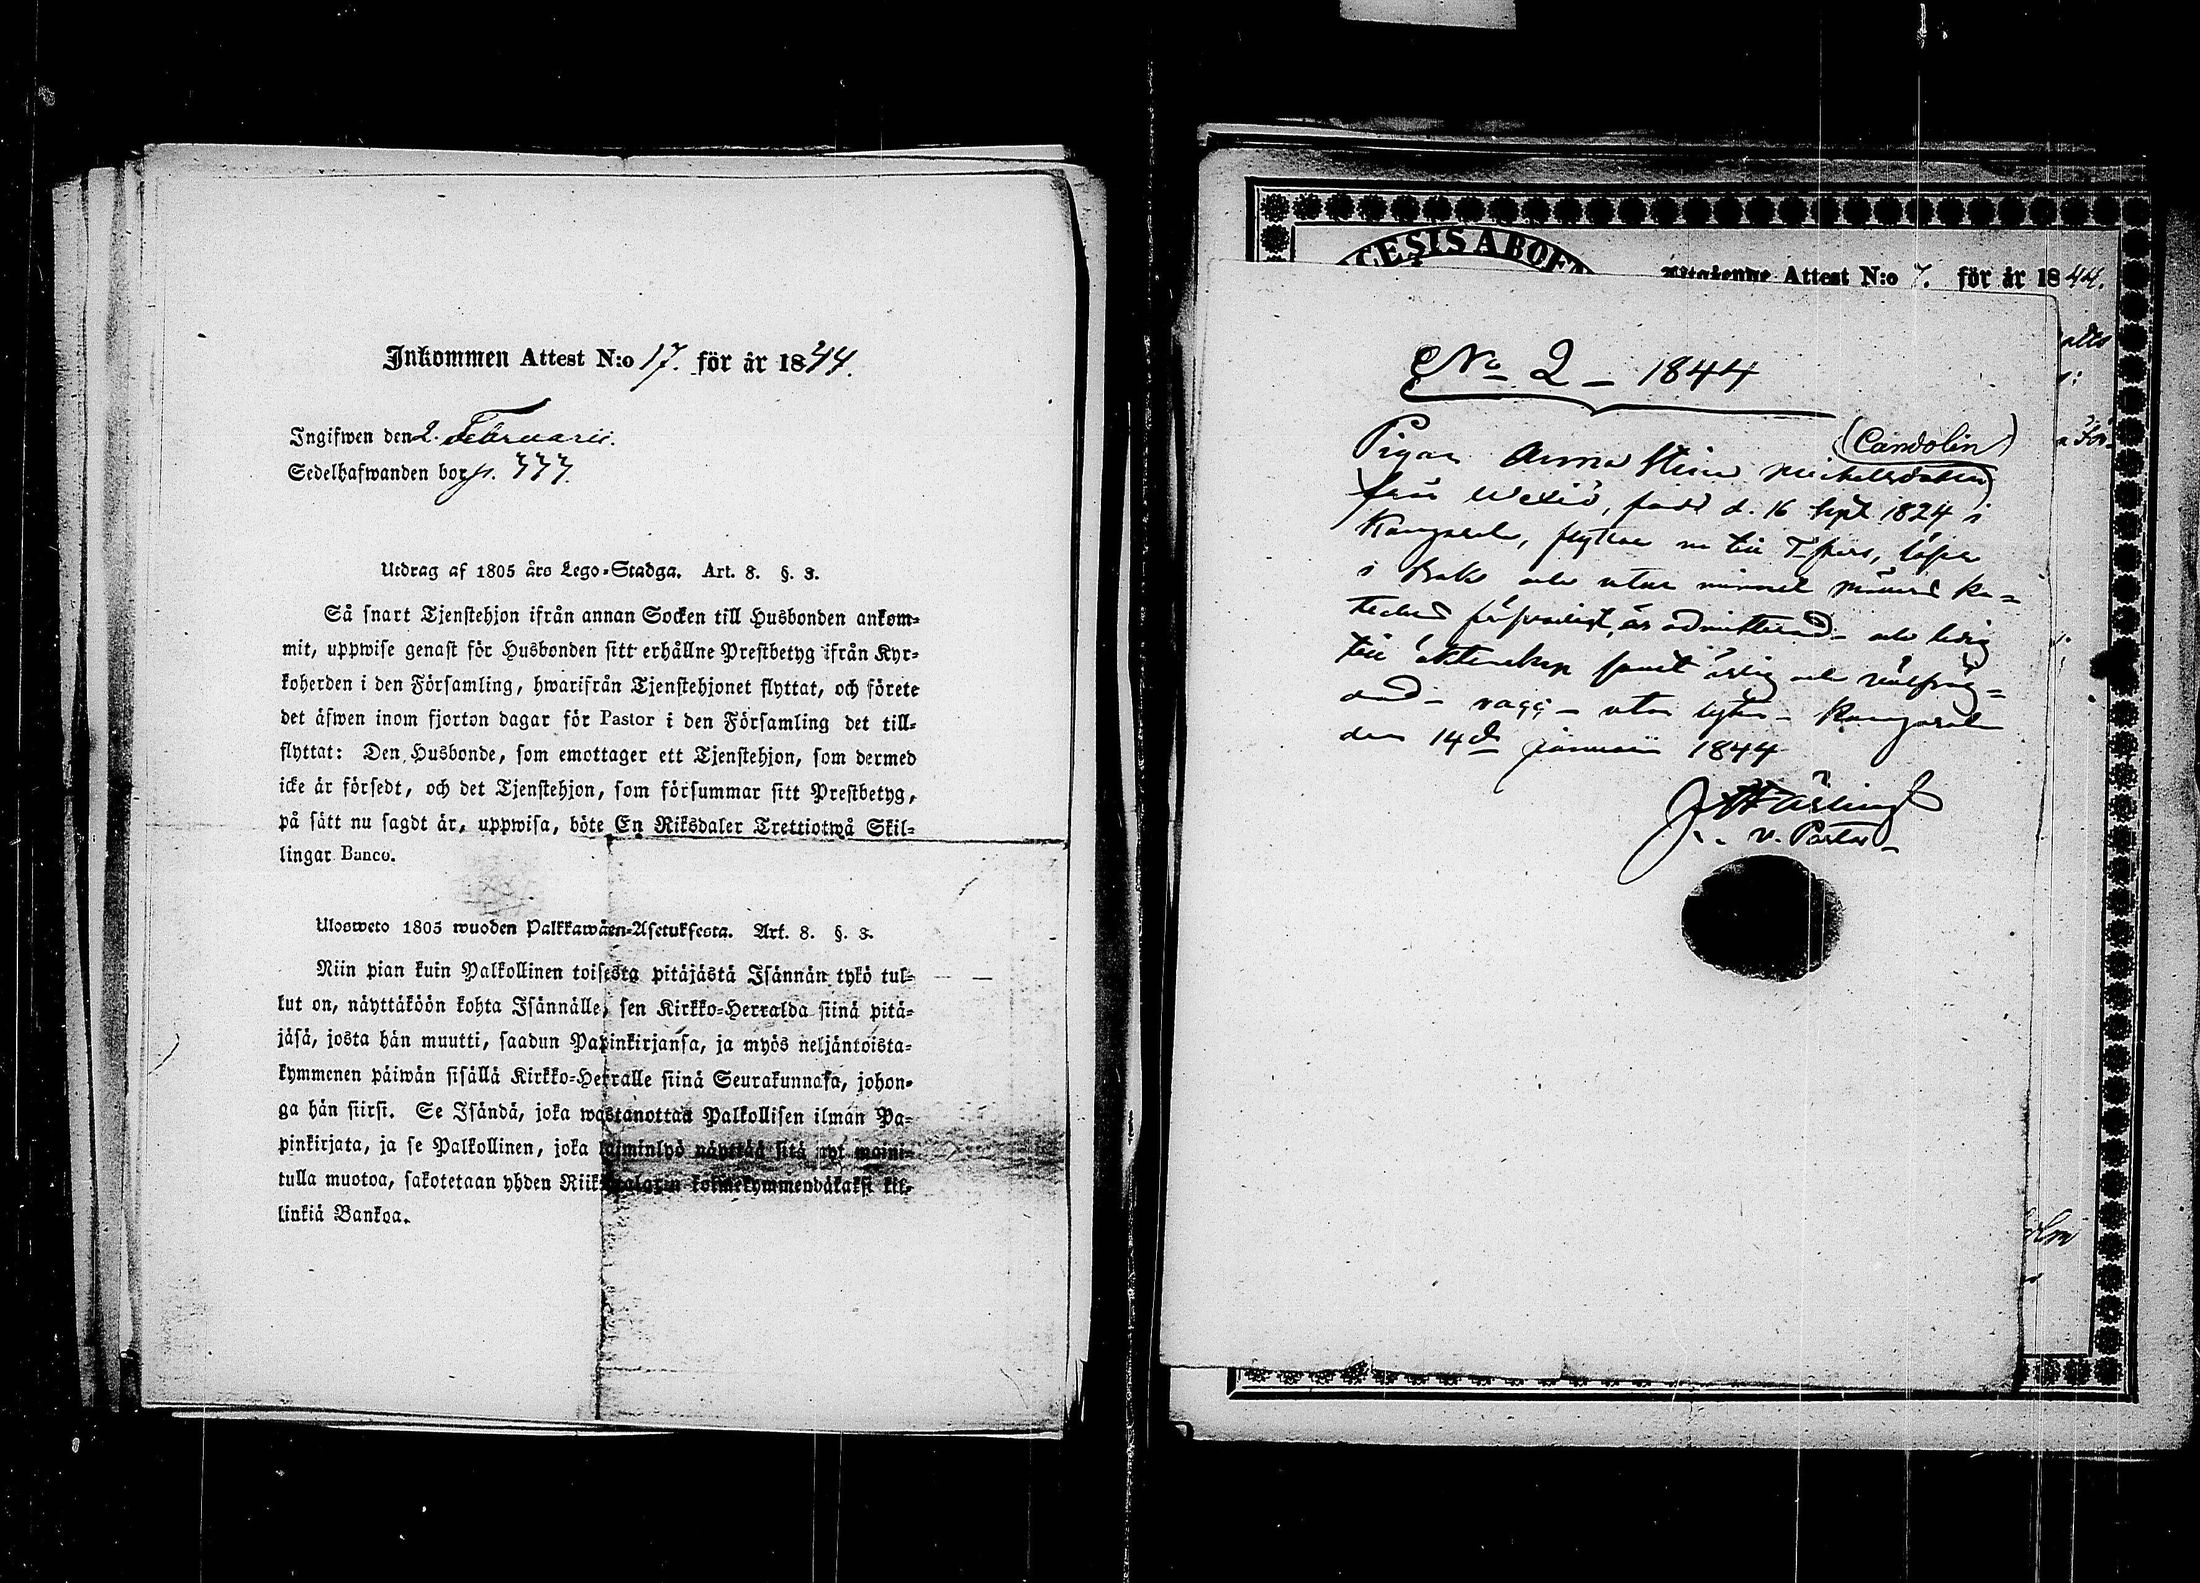 Inkommen Attest N:o 17. för år 1844.
Ingifwen den 2. Februarii.
Sedelhafwanden bor p. 777.
Utdrag af 1805 års Lego-Stadga. Art. 8. §. 3.
Så snart Tjenstehjon ifrån annan Socken till Husbonden ankom-
mit, uppwise genast för Husbonden sitt erhållne Prestbetyg ifrån Kyr-
koherden i den Församling, hwarifrån Tjenstehjonet flyttat, och förete
det äfwen inom fjorton dagar för Pastor i den Församling det till-
flyttat: Den Husbonde, som emottager ett Tjenstehjon, som dermed
icke är försedt, och det Tjenstehjon, som försummar sitt Prestbetyg,
på sätt nu sagdt är, uppwisa, böte En Riksdaler Trettiotwå Skil-
lingar Banco.
Ulosweto 1805 wuoden Palkkawäen-Asetuksesta. Art. 8. §. 3.
Niin pian kuin Palkollinen toisesta pitäjästä Isännän tykö tul-
lut on, näyttäköön kohta Isännälle, sen Kirkko-Herralda siinä pitä-
jäsä, josta hän muutti, saadun Papinkirjansa, ja myös neljäntoista-
kymmenen päiwän sisällä Kirkko-Herralle siinä Seurakunnasa, johon-
ga hän siirsi. Se Isändä, joka wastanottaa Palkollisen ilman Pa-
pinkirjata, ja se Palkollinen, joka laiminlyö näyttää sitä nyt maini-
tulla muotoa, sakotetaan yhden Riiksdalarin kolmekymmendäkaksi kil-
linkiä Bankoa.
CESIS ABOE
Attest N:o 7. för år 1844.
No 2 - 1844
(Candolin)
Pigan Anna Stina Michelsdotter
från Wexiö, född d. 16 Sept 1824 i
Kangasala, flyttar nu till T-fors, läser
i Bok och utan minnet Ka-
teches försvarligt, är admitterad och ledig
till äktenskap samt ärlig och välfräg-
dad - vacc - utan lyte - Kangasala
den 14de Januarii 1844
v. Pastor